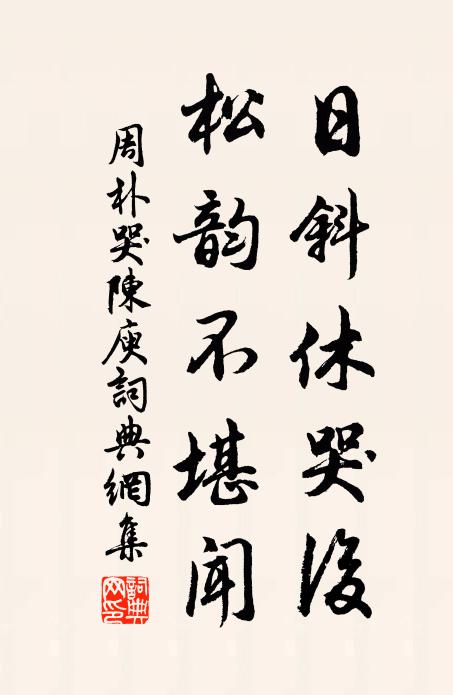 日斜休哭後
松韵不堪闻
周朴哭陳庾詞典網集
詞典
网印